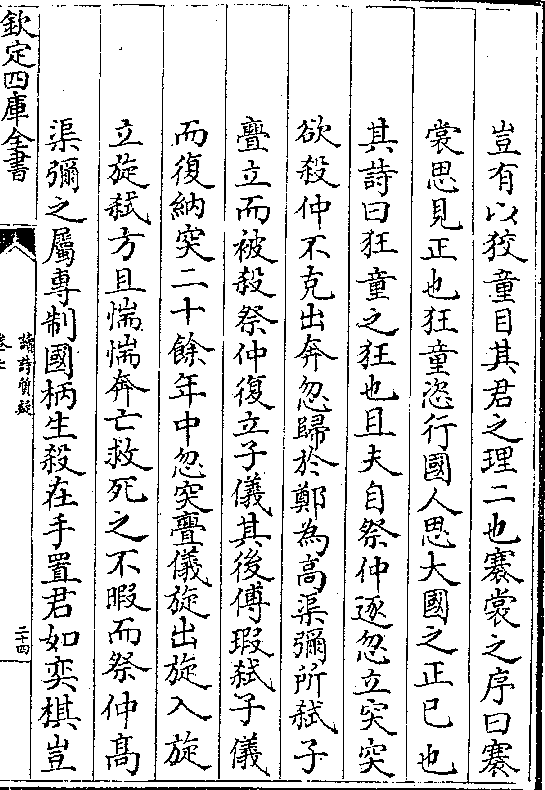 豈有以狡童目其君之理二也褰裳之序曰褰
裳思見正也狂童恣行國人思大國之正已也
其詩曰狂童之狂也且夫自祭仲逐忽立突突
欲殺仲不克出奔忽歸於鄭為高渠彌所弑子
亹立而被殺祭仲復立子儀其後傅瑕弑子儀
而復納突二十餘年中忽突亹儀旋出旋入旋
立旋弑方且惴惴奔亡救死之不暇而祭仲髙
渠彌之屬專制國柄生殺在手置君如奕棋豈
欽定四庫全書
讀詩質疑
二十四